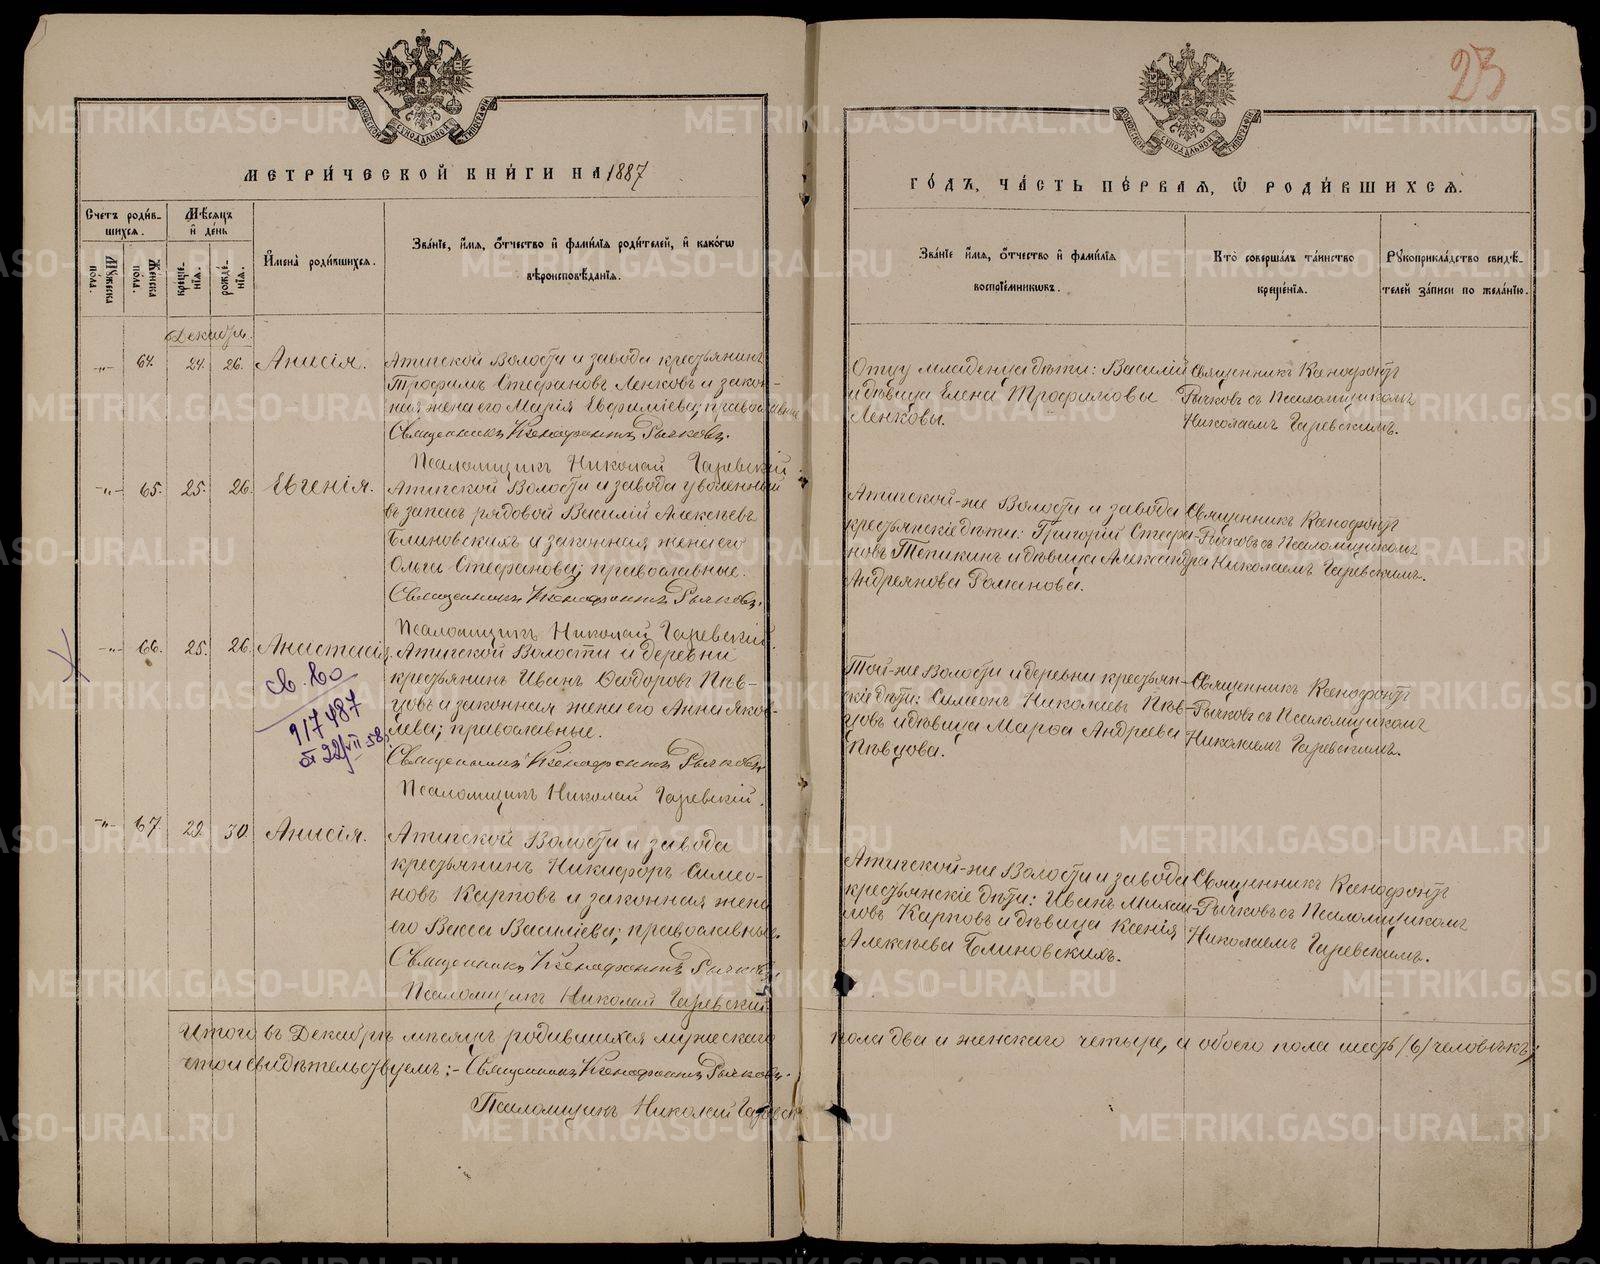 23
МЕТРИ́ЧЕСКОЙ КНИ́ГИ НА 1887
ГО́ДЪ, ЧА́СТЬ ПЕ́РВАЯ, Ѿ РОДИ́ВШИХСЯ.
Счетъ роди́в-
шихся.
Мѣсяцъ
и де́нь
Мужеска
пола.
Женска
пола.
креще-
нія.
рожде-
нія.
Имена̀ роди́вшихся.
Зва́ніе, и́мя, о́тчество и фами́лія роди́телей, и како́гѡ
вѣроисповѣ́данія.
Зва́ніе и́мя, о́тчество и фами́лія
воспріе́мникѡвъ.
Кто̀ соверша́лъ та́инство
креще́нія.
Рукоприкла́дство свидѣ́-
телей за́писи по жела́нію.
Декабрь.
-„- 64. 24. 26. Анисія.
Атигской Волости и завода крестьянинъ
Трофимъ Стефановъ Ленковъ и закон-
ная жена его Марія Евфиміева; православные
Священникъ Ксенофонтъ Рычковъ.
Псаломщикъ Николай Гаревскій.
Отцу младенца дѣти: Василій
и дѣвица Елена Трофимовы
Ленковы.
Священникъ Ксенофонтъ
Рычковъ съ Псаломщикомъ
Николаемъ Гаревскимъ.
-„- 65. 25. 26. Евгенія.
Атигской Волости и завода уволенный
въ запасъ рядовой Василій Алексѣевъ
Блиновскихъ и законная жена его
Ольга Стефанова; православные.
Священникъ Ксенофонтъ Рычковъ.
Псаломщикъ Николай Гаревскій.
Атигской-же Волости и завода
крестьянскіе дѣти: Григорій Стефа-
новъ Тепикинъ и дѣвица Александра
Андреянова Романова.
Священникъ Ксенофонтъ
Рычковъ съ Псаломщикомъ
Николаемъ Гаревскимъ.
-„- 66. 25. 26. Анастасія.
св. во
917487
от 22/VII-58
Атигской Волости и деревни
крестьянинъ Иванъ Ѳеодоровъ Пѣв-
цовъ и законная жена его Анна Яков-
лева; православные.
Священникъ Ксенофонтъ Рычковъ.
Псаломщикъ Николай Гаревскій.
Той-же Волости и деревни крестьян-
скіе дѣти: Симеонъ Николаевъ Пѣв-
цовъ и дѣвица Марѳа Андреева
Пѣвцова.
Священникъ Ксенофонтъ
Рычковъ съ Псаломщикомъ
Николаемъ Гаревскимъ.
-„- 67. 29. 30. Анисія.
Атигской Волости и завода
крестьянинъ Никифоръ Симео-
новъ Карповъ и законная жена
его Васса Васильева; православные.
Священникъ Ксенофонтъ Рычковъ.
Псаломщикъ Николай Гаревскій
Атигской-же Волости и завода
крестьянскіе дѣти: Иванъ Михаи-
ловъ Карповъ и дѣвица Ксенія
Алексѣева Блиновскихъ.
Священникъ Ксенофонтъ
Рычковъ съ Псаломщикомъ
Николаемъ Гаревскимъ.
Итого въ Декабрѣ мѣсяцѣ родившихся мужескаго пола два и женскаго четыре, а обоего пола шесть /6/ человѣкъ;
въ томъ свидѣтельствуемъ:- Священникъ Ксенофонтъ Рычковъ.
Псаломщикъ Николай Гаревск
METRIKI.GASO-URAL.RU